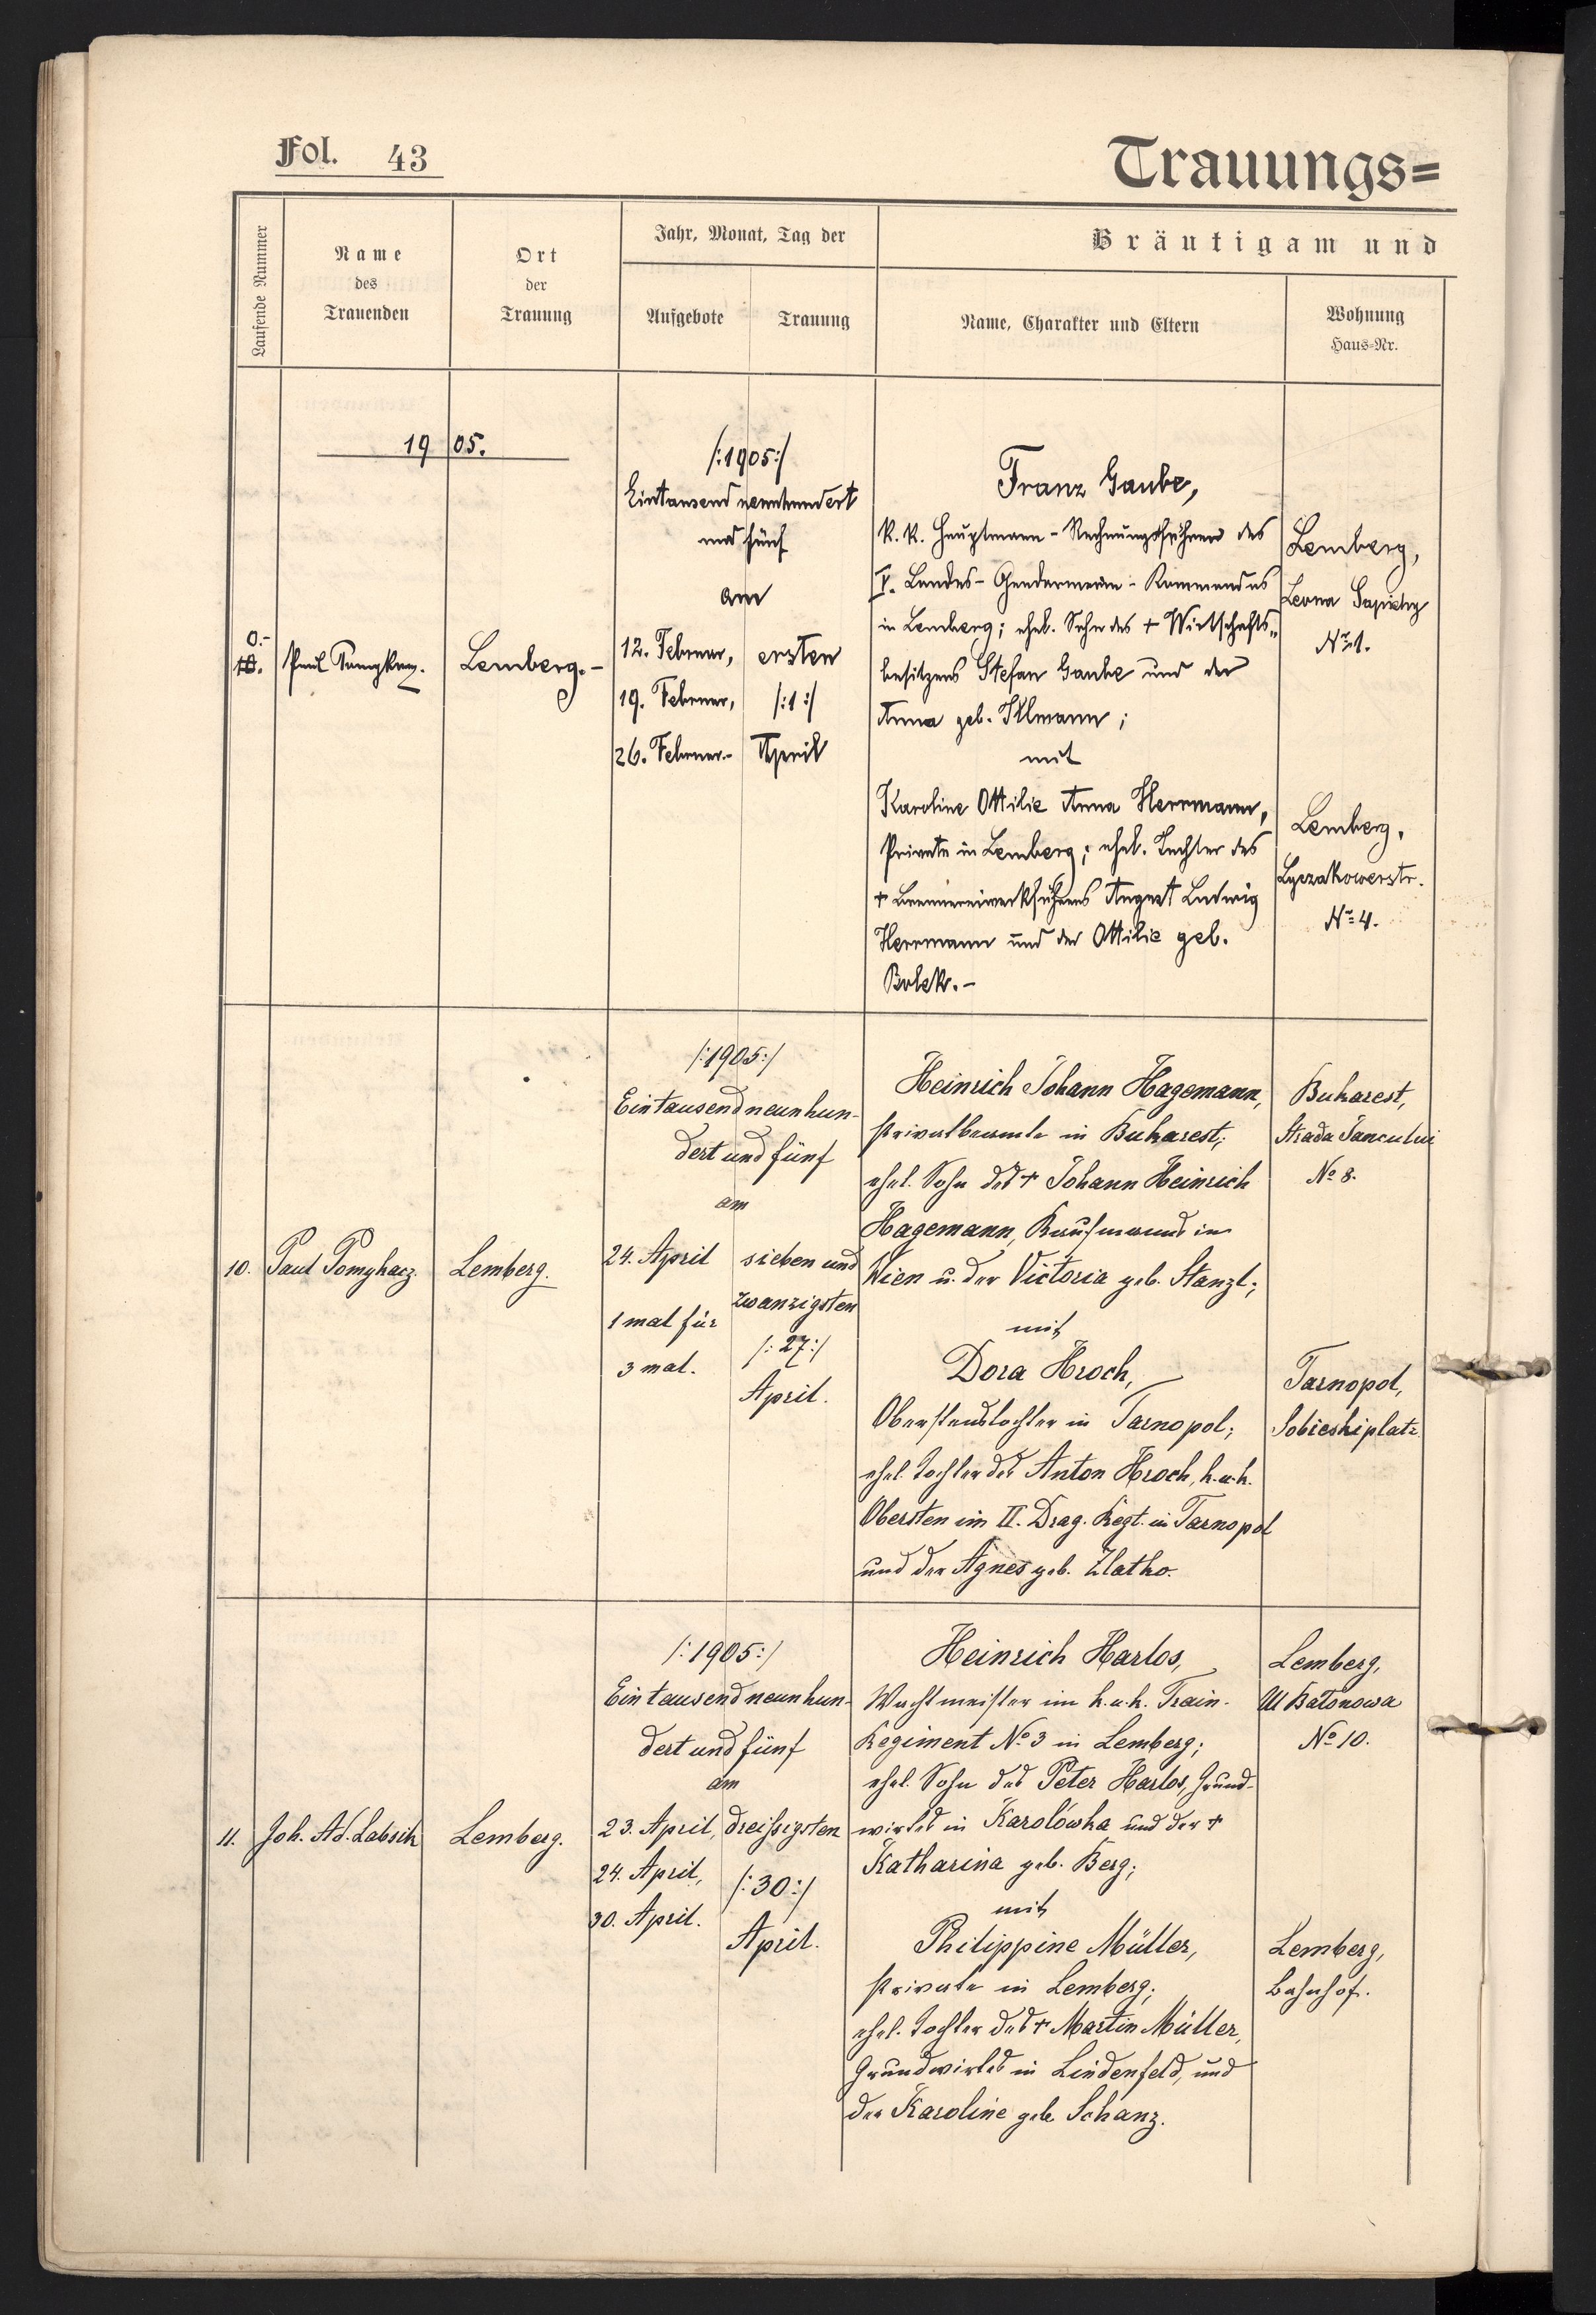 Fol. 43
Trauungs=
Laufende Nummer
Name
des
Trauenden
Ort
der
Trauung
Jahr, Monat, Tag der
Aufgebote
Trauung
Bräutigam und
Name, Charakter und Eltern
Wohnung
Haus=Nr.
1905.
/:1905:/
Eintausend neunhundert
und fünf
am
12. Februar,
19. Februar,
26. Februar.-
ersten
/:1:/
April
10.
Paul Pomykacz.
Lemberg.-
Franz Gaube,
K. K. Hauptmann-Rechnungsführer des
V. Landes-Gendarmerie-Kommandos
in Lemberg; ehel. Sohn des + Wirtschafts„
besitzers Stefan Gaube und der
Anna geb. Illmann;
mit
Karoline Ottilie Anna Herrmann,
Private in Lemberg; ehel. Tochter des
+ Brennereiwerkführers August Ludwig
Herrmann und der Ottilie geb.
Bolek.-
Lemberg,
Leona Sapiehy
No 1.
Lemberg,
Lyczakowerstr.
No 4.
10.
Paul Pomykacz.
Lemberg.
/:1905:/
Eintausendneunhun-
dert und fünf
am
24. April
1 mal für
3 mal.
sieben und
zwanzigsten
/:27:/
April.
Heinrich Johann Hagemann,
Privatbeamte in Bukarest;
ehel. Sohn des + Johann Heinrich
Hagemann, Kaufmanns in
Wien u. der Victoria geb. Stanzl;
mit
Dora Hroch,
Oberstenstochter in Tarnopol;
ehel. Tochter des Anton Hroch, k. u. k.
Obersten im II. Drag. Regt. in Tarnopol
und der Agnes geb. Zlatko.
Bukarest,
Strada Jancului
No 8.
Tarnopol,
Sobieskiplatz
11.
Joh. Ad. Labsik
Lemberg.
/:1905:/
Eintausendneunhun-
dert und fünf
am
23. April,
24. April,
30. April.
dreißigsten
/:30:/
April.
Heinrich Harlos,
Wachtmeister im k. u. k. Train-
Regiment No 3 in Lemberg;
ehel. Sohn des Peter Harlos, Grund-
wirtes in Karolówka und der +
Katharina geb. Berg;
mit
Philippine Müller,
Private in Lemberg;
ehel. Tochter des + Martin Müller,
Grundwirtes in Lindenfeld, und
der Karoline geb. Schanz.
Lemberg,
Ul Batonowa
No 10.
Lemberg,
Bahnhof.